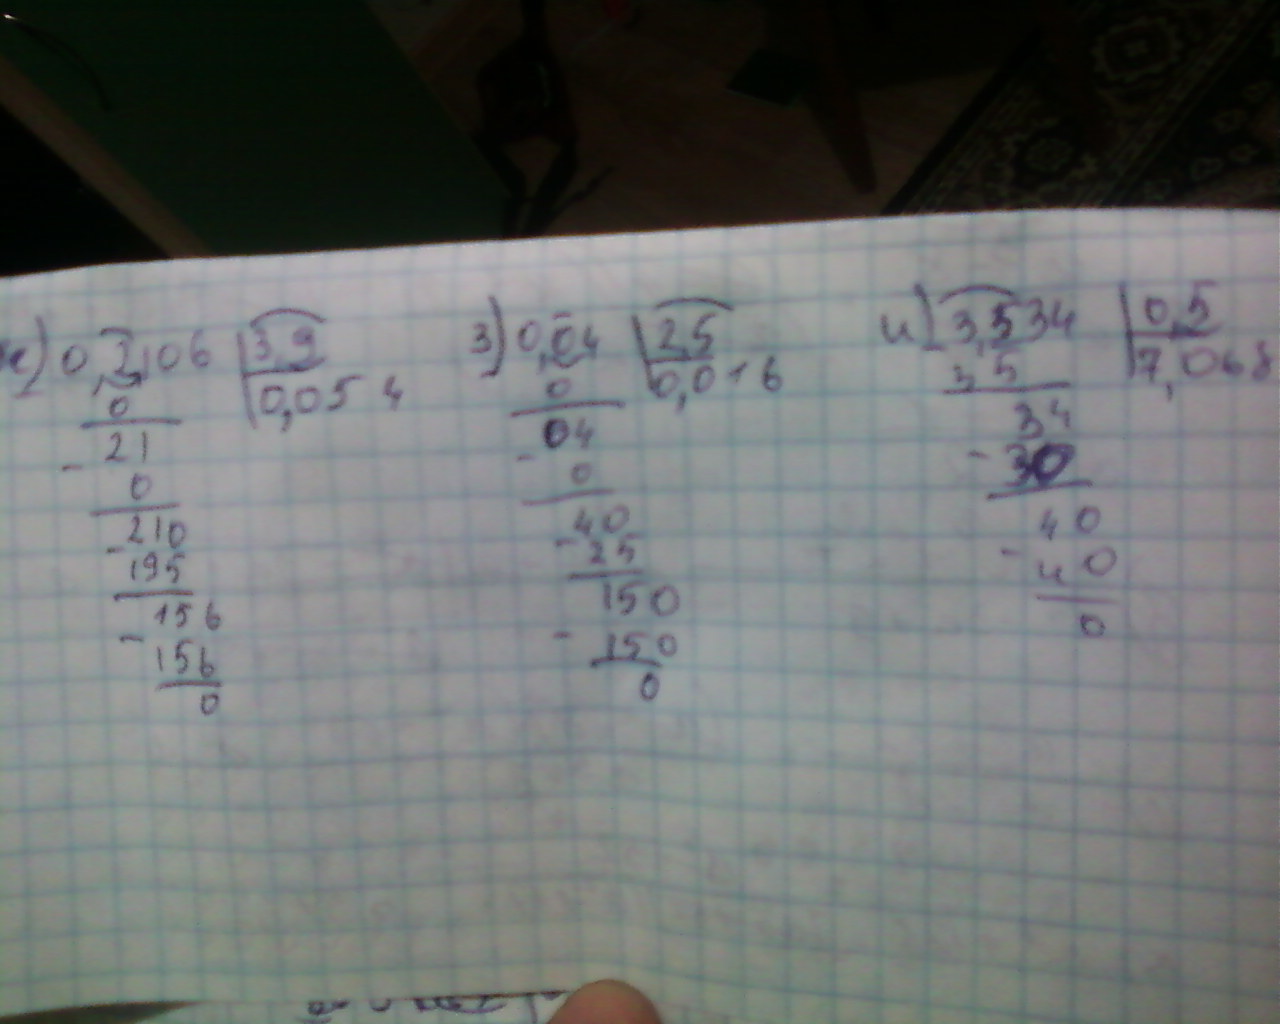 ж) 0,2106 | 3,9
0 | 0,054
21
- 0
210
- 195
156
- 156
0
з) 0,04 | 2,5
0 | 0,016
04
- 0
40
- 25
150
- 150
0
и) 3,534 | 0,5
35 | 7,068
34
- 30
40
- 40
0